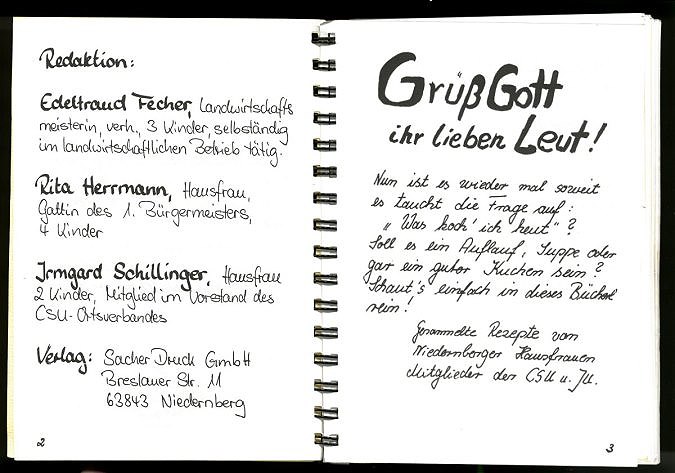 Redaktion:
Edeltraud Fecher, Landwirtschafts
meisterin, verh., 3 Kinder, selbständig
im landwirtschaftlichen Betrieb tätig.
Rita Herrmann, Hausfrau,
Gattin des 1. Bürgermeisters,
4 Kinder
Irmgard Schillinger, Hausfrau
2 Kinder, Mitglied im Vorstand des
CSU-Ortsverbandes
Verlag: Sacher Druck GmbH
Breslauer Str. 11
63843 Niedernberg
2
Grüß Gott
ihr lieben Leut!
Nun ist es wieder mal soweit
es taucht die Frage auf:
„Was koch' ich heut"?
Soll es ein Auflauf, Suppe oder
gar ein guter Kuchen sein?
Schaut's einfach in dieses Bücherl
rein!
Gesammelte Rezepte von
Niedernberger Hausfrauen
Mitglieder der CSU u. JU.
3